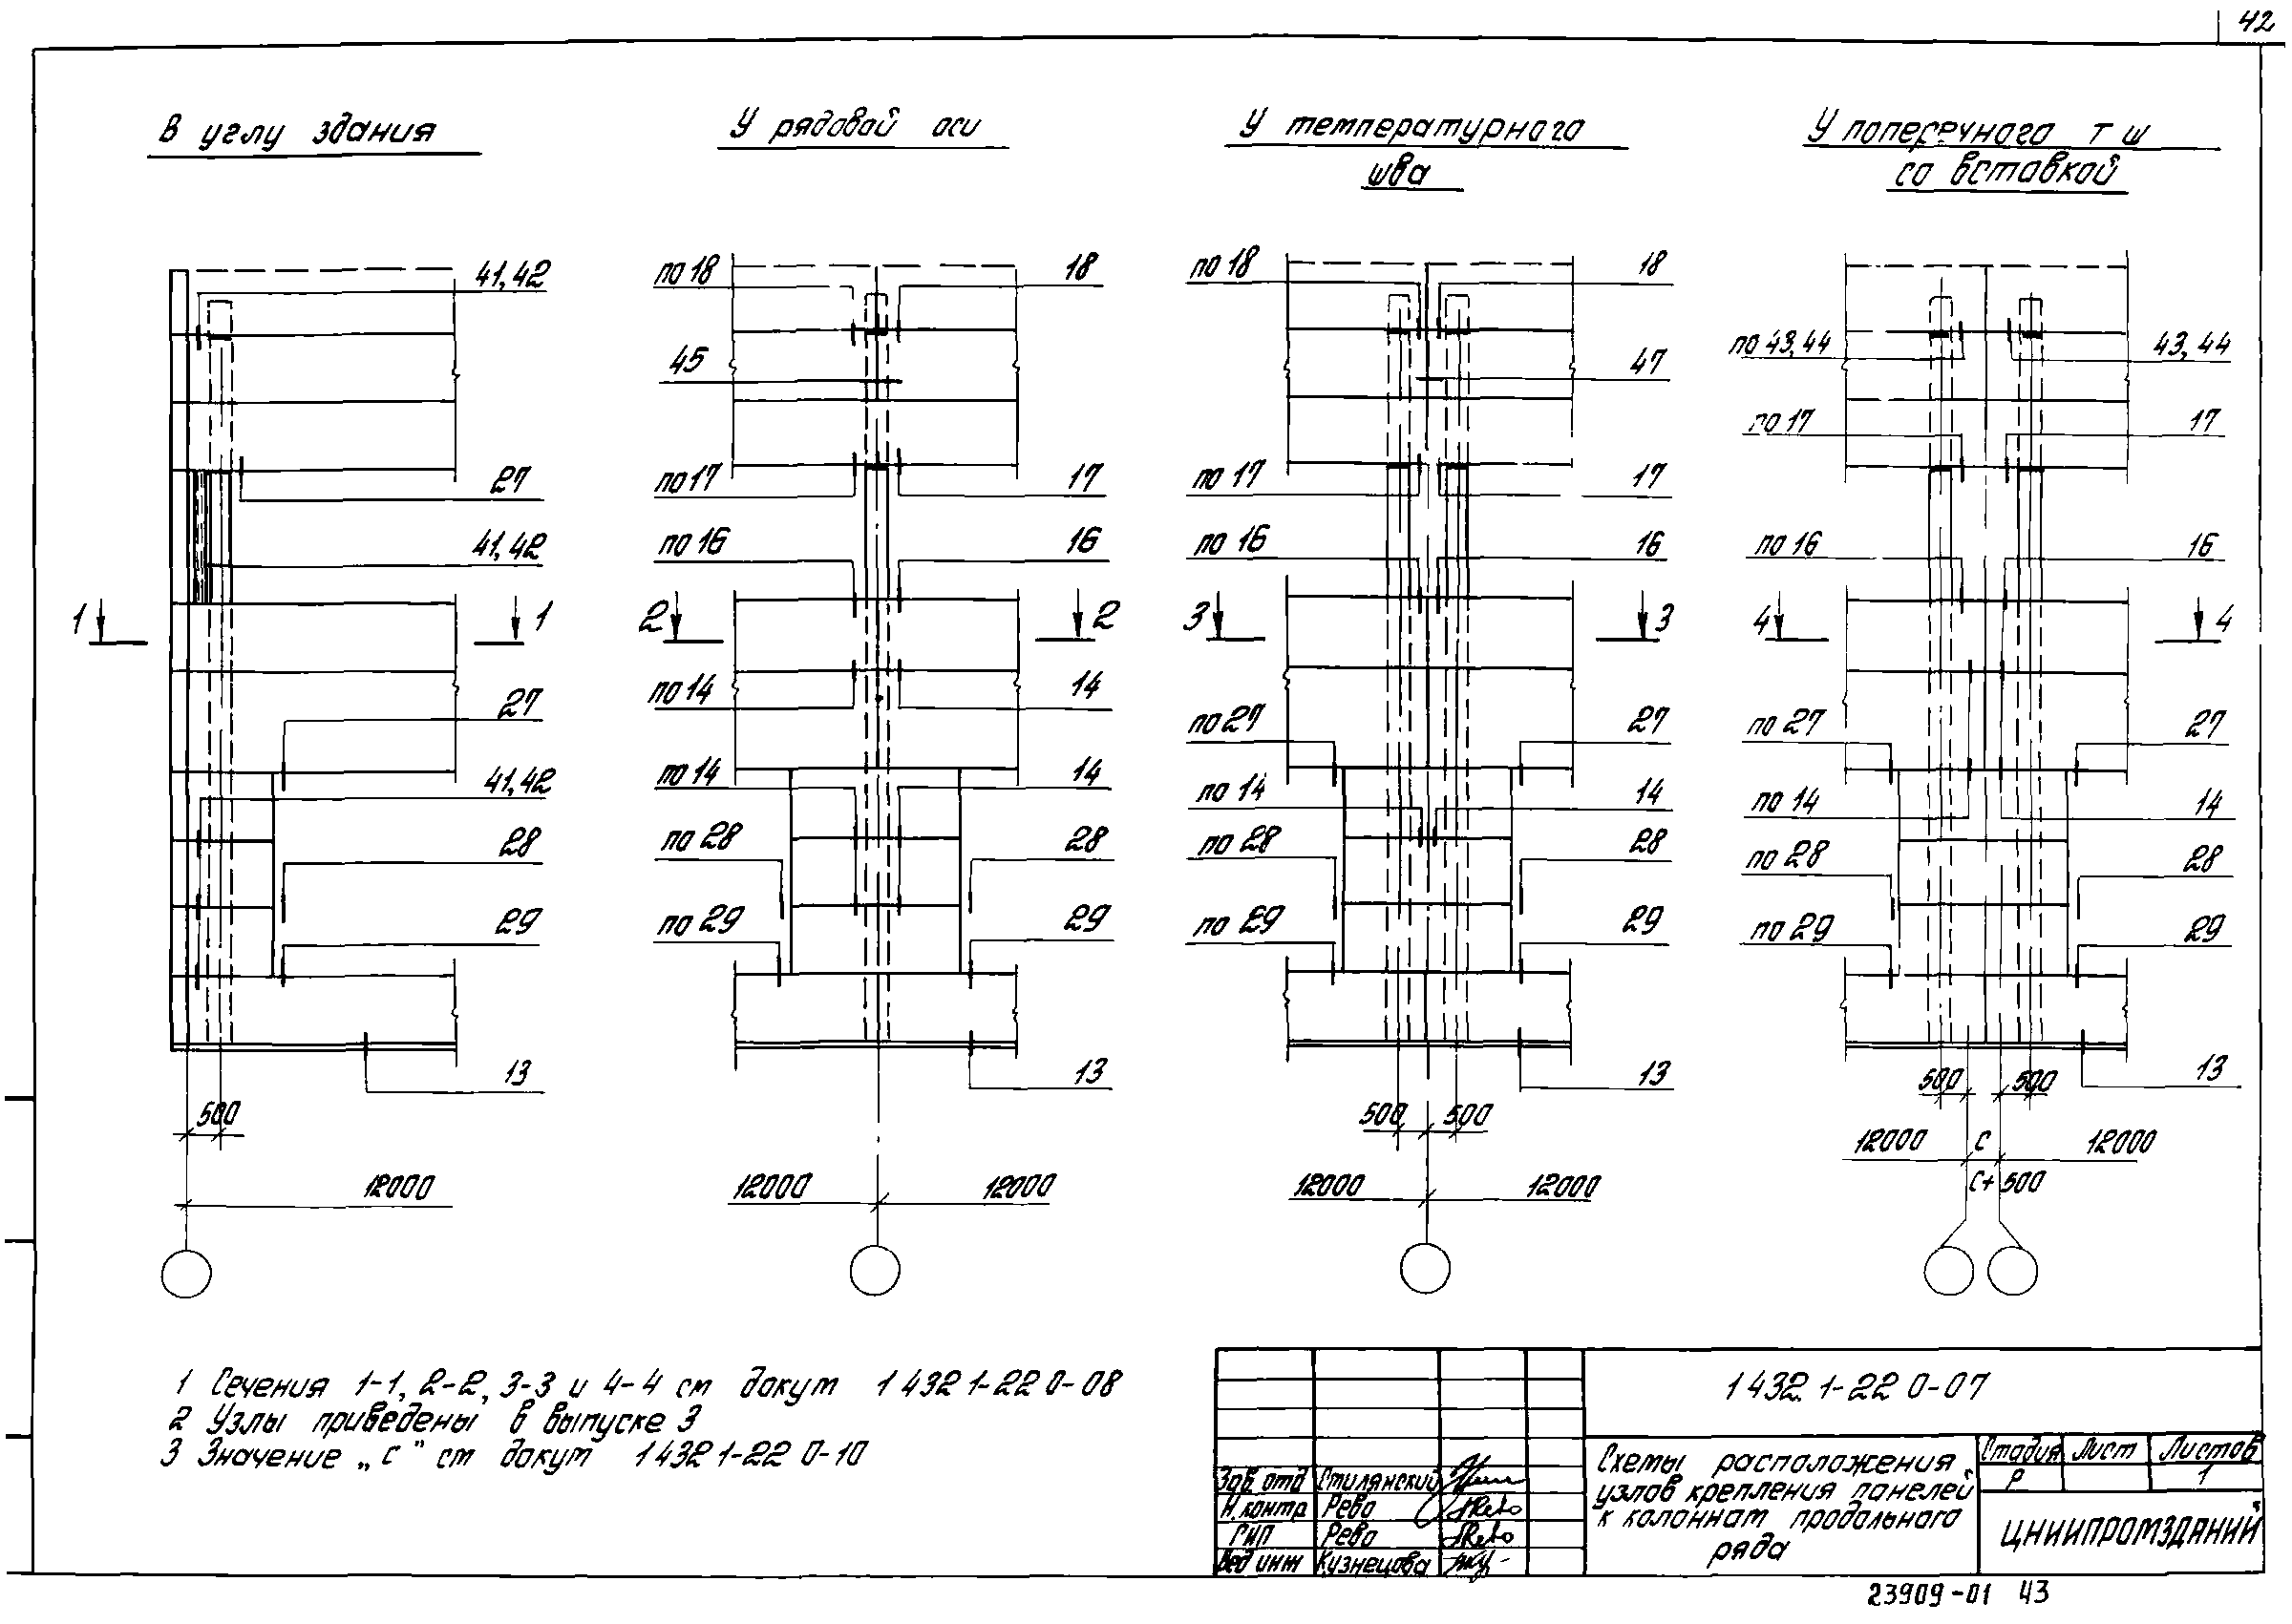 42
В углу здания
У рядовой оси
У температурного
шва
У поперечного т ш
со вставкой
41,42
27
41,42
1 1
27
41,42
28
29
13
500
12000
по 18 18
45
по 17 17
по 16 16
2 2
по 14 14
по 14 14
по 28 28
по 29 29
13
12000 12000
по 18 18
47
по 17 17
по 16 16
3 3
по 27 27
по 14 14
по 28 28
по 29 29
13
500 500
12000 12000
по 43,44 43,44
по 17 17
по 16 16
4 4
по 27 27
по 14 14
по 28 28
по 29 29
13
500 500
12000 с 12000
с+500
1 Сечения 1-1, 2-2, 3-3 и 4-4 см докум 1 432 1-22 0-08
2 Узлы приведены в выпуске 3
3 Значение „с" см докум 1 432 1-22 0-10
1 432 1-22 0-07
Зав. отд Стилянский
Н. контр Рево
ГИП Рево
Вед инж Кузнецова
Схемы расположения
узлов крепления панелей
к колоннам продольного
ряда
Стадия Лист Листов
Р 1
ЦНИИПРОМЗДАНИЙ
23909-01 43